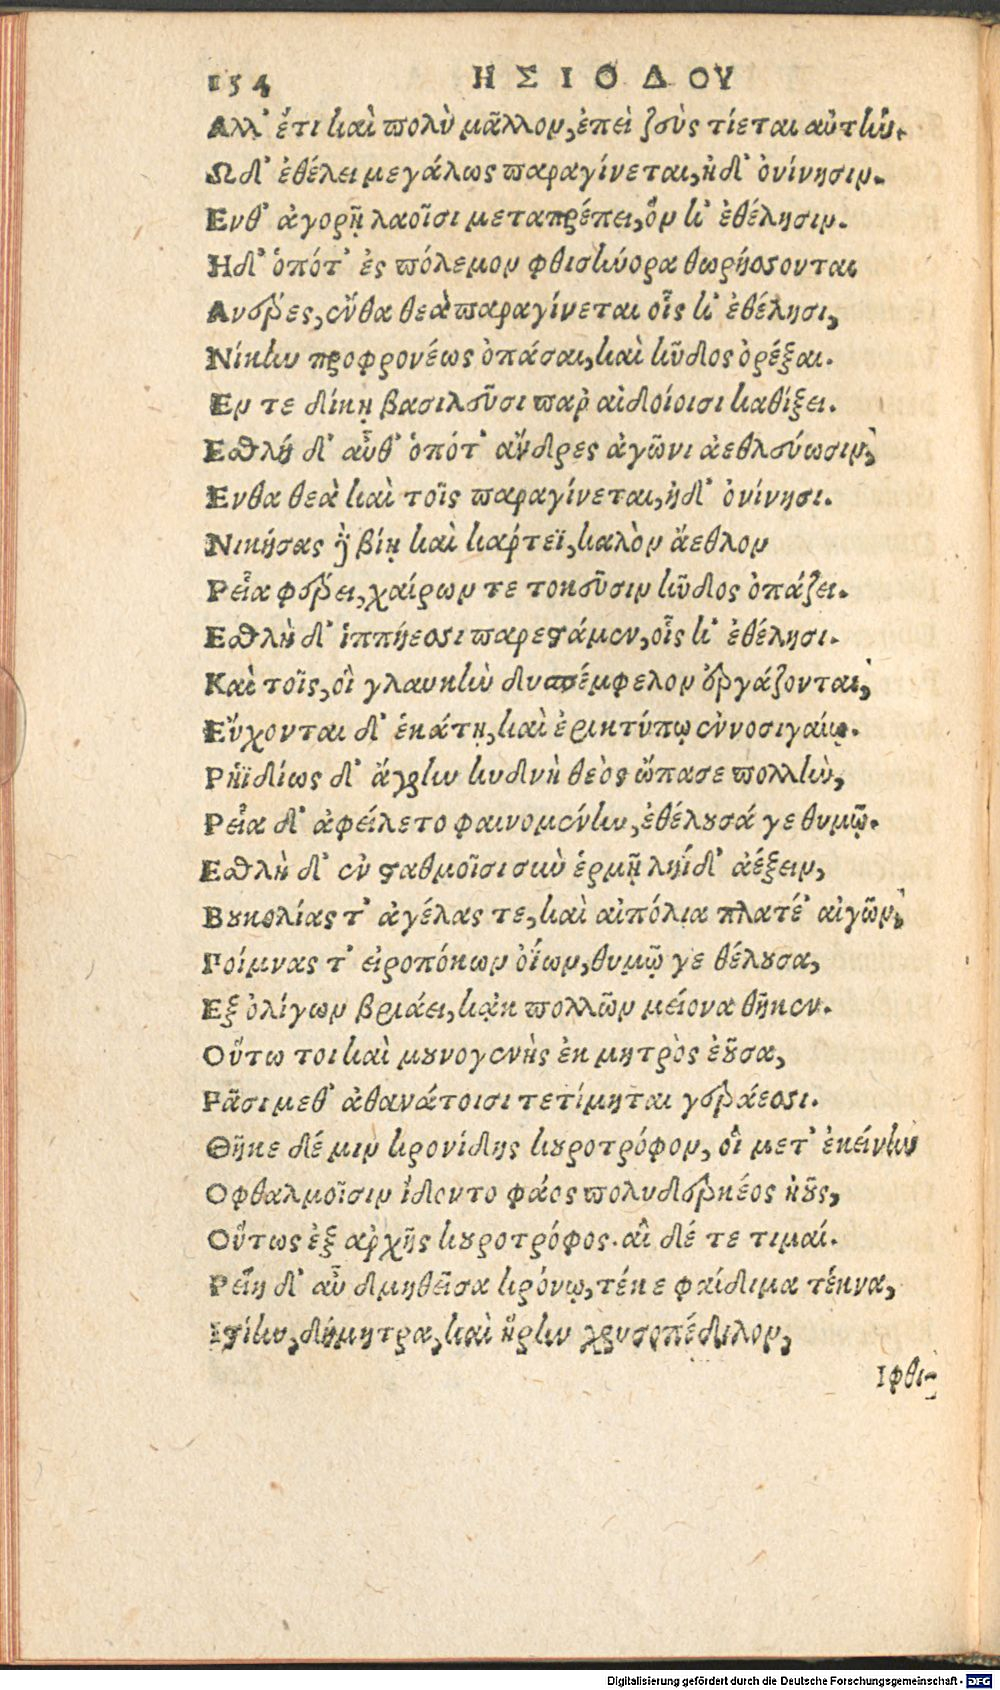 154 ΗΣΙΟΔΟΥ
Αλλ' ἔτι καὶ πολὺ μᾶλλον, ἐπεὶ ζεὺς τίεται αὐτήν.
Ω δ' ἐθέλει μεγάλως παραγίνεται, ἠδ' ὀνίνησιν.
Ενθ' ἀγορῇ λαοῖσι μεταπρέπει, ὅν κ' ἐθέλησιν.
Ηδ' ὁπότ' ἐς πόλεμον φθισήνορα θωρήσσονται
Ανδρες, ἔνθα θεὰ παραγίνεται οἷς κ' ἐθέλησι,
Νίκην προφρονέως ὀπάσαι, καὶ κῦδος ὀρέξαι.
Εν τε δίκῃ βασιλεῦσι παρ' αἰδοίοισι καθίξει.
Εσθλή δ' αὖθ' ὁπότ' ἄνδρες ἀγῶνι ἀεθλεύωσιν,
Ενθα θεὰ καὶ τοῖς παραγίνεται, ἠδ' ὀνίνησι.
Νικήσας δὲ βίῃ καὶ κάρτεϊ, καλὸν ἄεθλον
Ρεῖα φέρει, χαίρων τε τοκεῦσιν κῦδος ὀπάζει.
Εσθλὴ δ' ἱππήεσσι παρεστάμεν, οἷς κ' ἐθέλησι.
Καὶ τοῖς, οἳ γλαυκὴν δυσπέμφελον ἐργάζονται,
Εὔχονται δ' ἑκάτῃ, καὶ ἐρικτύπῳ ἐννοσιγαίῳ.
Ρηϊδίως δ' ἄγρην κυδνὴ θεὸς ὤπασε πολλὴν,
Ρεῖα δ' ἀφείλετο φαινομένην, ἐθέλουσά γε θυμῷ.
Εσθλὴ δ' ἐν σταθμοῖσι σὺν ἑρμῇ ληΐδ' ἀέξειν,
Βουκολίας τ' ἀγέλας τε, καὶ αἰπόλια πλατέ' αἰγῶν,
Ποίμνας τ' εἰροπόκων ὀΐων, θυμῷ γε θέλουσα,
Εξ ὀλίγων βριάει, κᾀκ πολλῶν μείονα θῆκεν.
Οὕτω τοι καὶ μουνογενὴς ἐκ μητρὸς ἐοῦσα,
Πᾶσι μεθ' ἀθανάτοισι τετίμηται γεράεσσι.
Θῆκε δέ μιν κρονίδης κουροτρόφον, οἳ μετ' ἐκείνην
Οφθαλμοῖσιν ἴδοντο φάος πολυδερκέος ἠοῦς,
Οὕτως ἐξ ἀρχῆς κουροτρόφος. αἳ δέ τε τιμαί.
Ρείη δ' αὖ δμηθεῖσα κρόνῳ, τέκε φαίδιμα τέκνα,
Ιστίην, δήμητρα, καὶ ἥρην χρυσοπέδιλον,
Ιφθι-
Digitalisierung gefördert durch die Deutsche Forschungsgemeinschaft - DFG